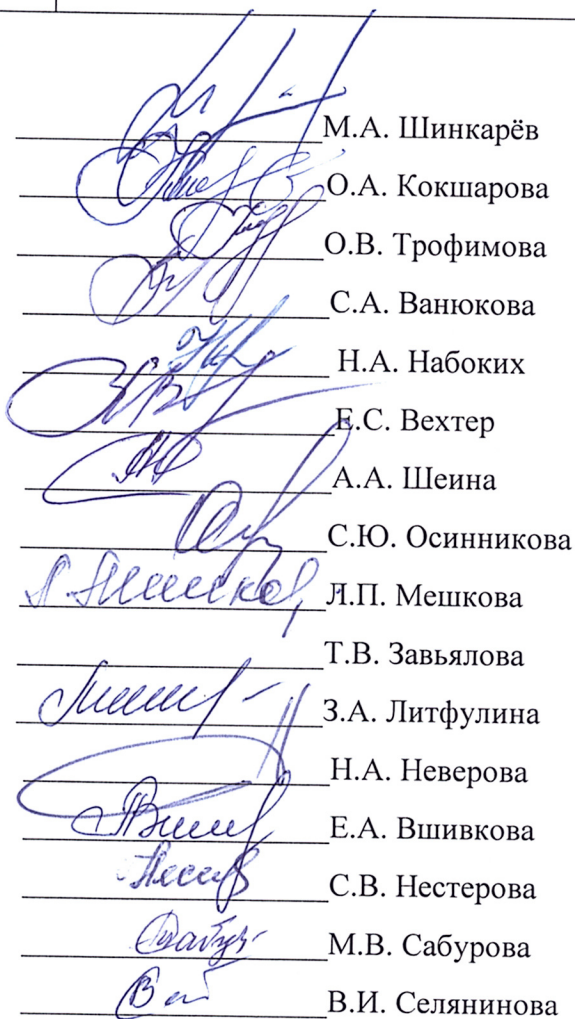 М.А. Шинкарёв
О.А. Кокшарова
О.В. Трофимова
С.А. Ванюкова
Н.А. Набоких
Е.С. Вехтер
А.А. Шеина
С.Ю. Осинникова
Л.П. Мешкова
Т.В. Завьялова
З.А. Литфулина
Н.А. Неверова
Е.А. Вшивкова
С.В. Нестерова
М.В. Сабурова
В.И. Селянинова